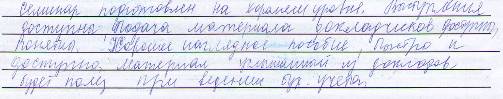 семинар подготовлен на хорошем уровне. Выступления
доступны. Подача материала докладчиков доступна,
понятна. Хорошее наглядное пособие, быстро и
доступно. Материал услышанный из докладов
будет полез при ведении бух. учета.